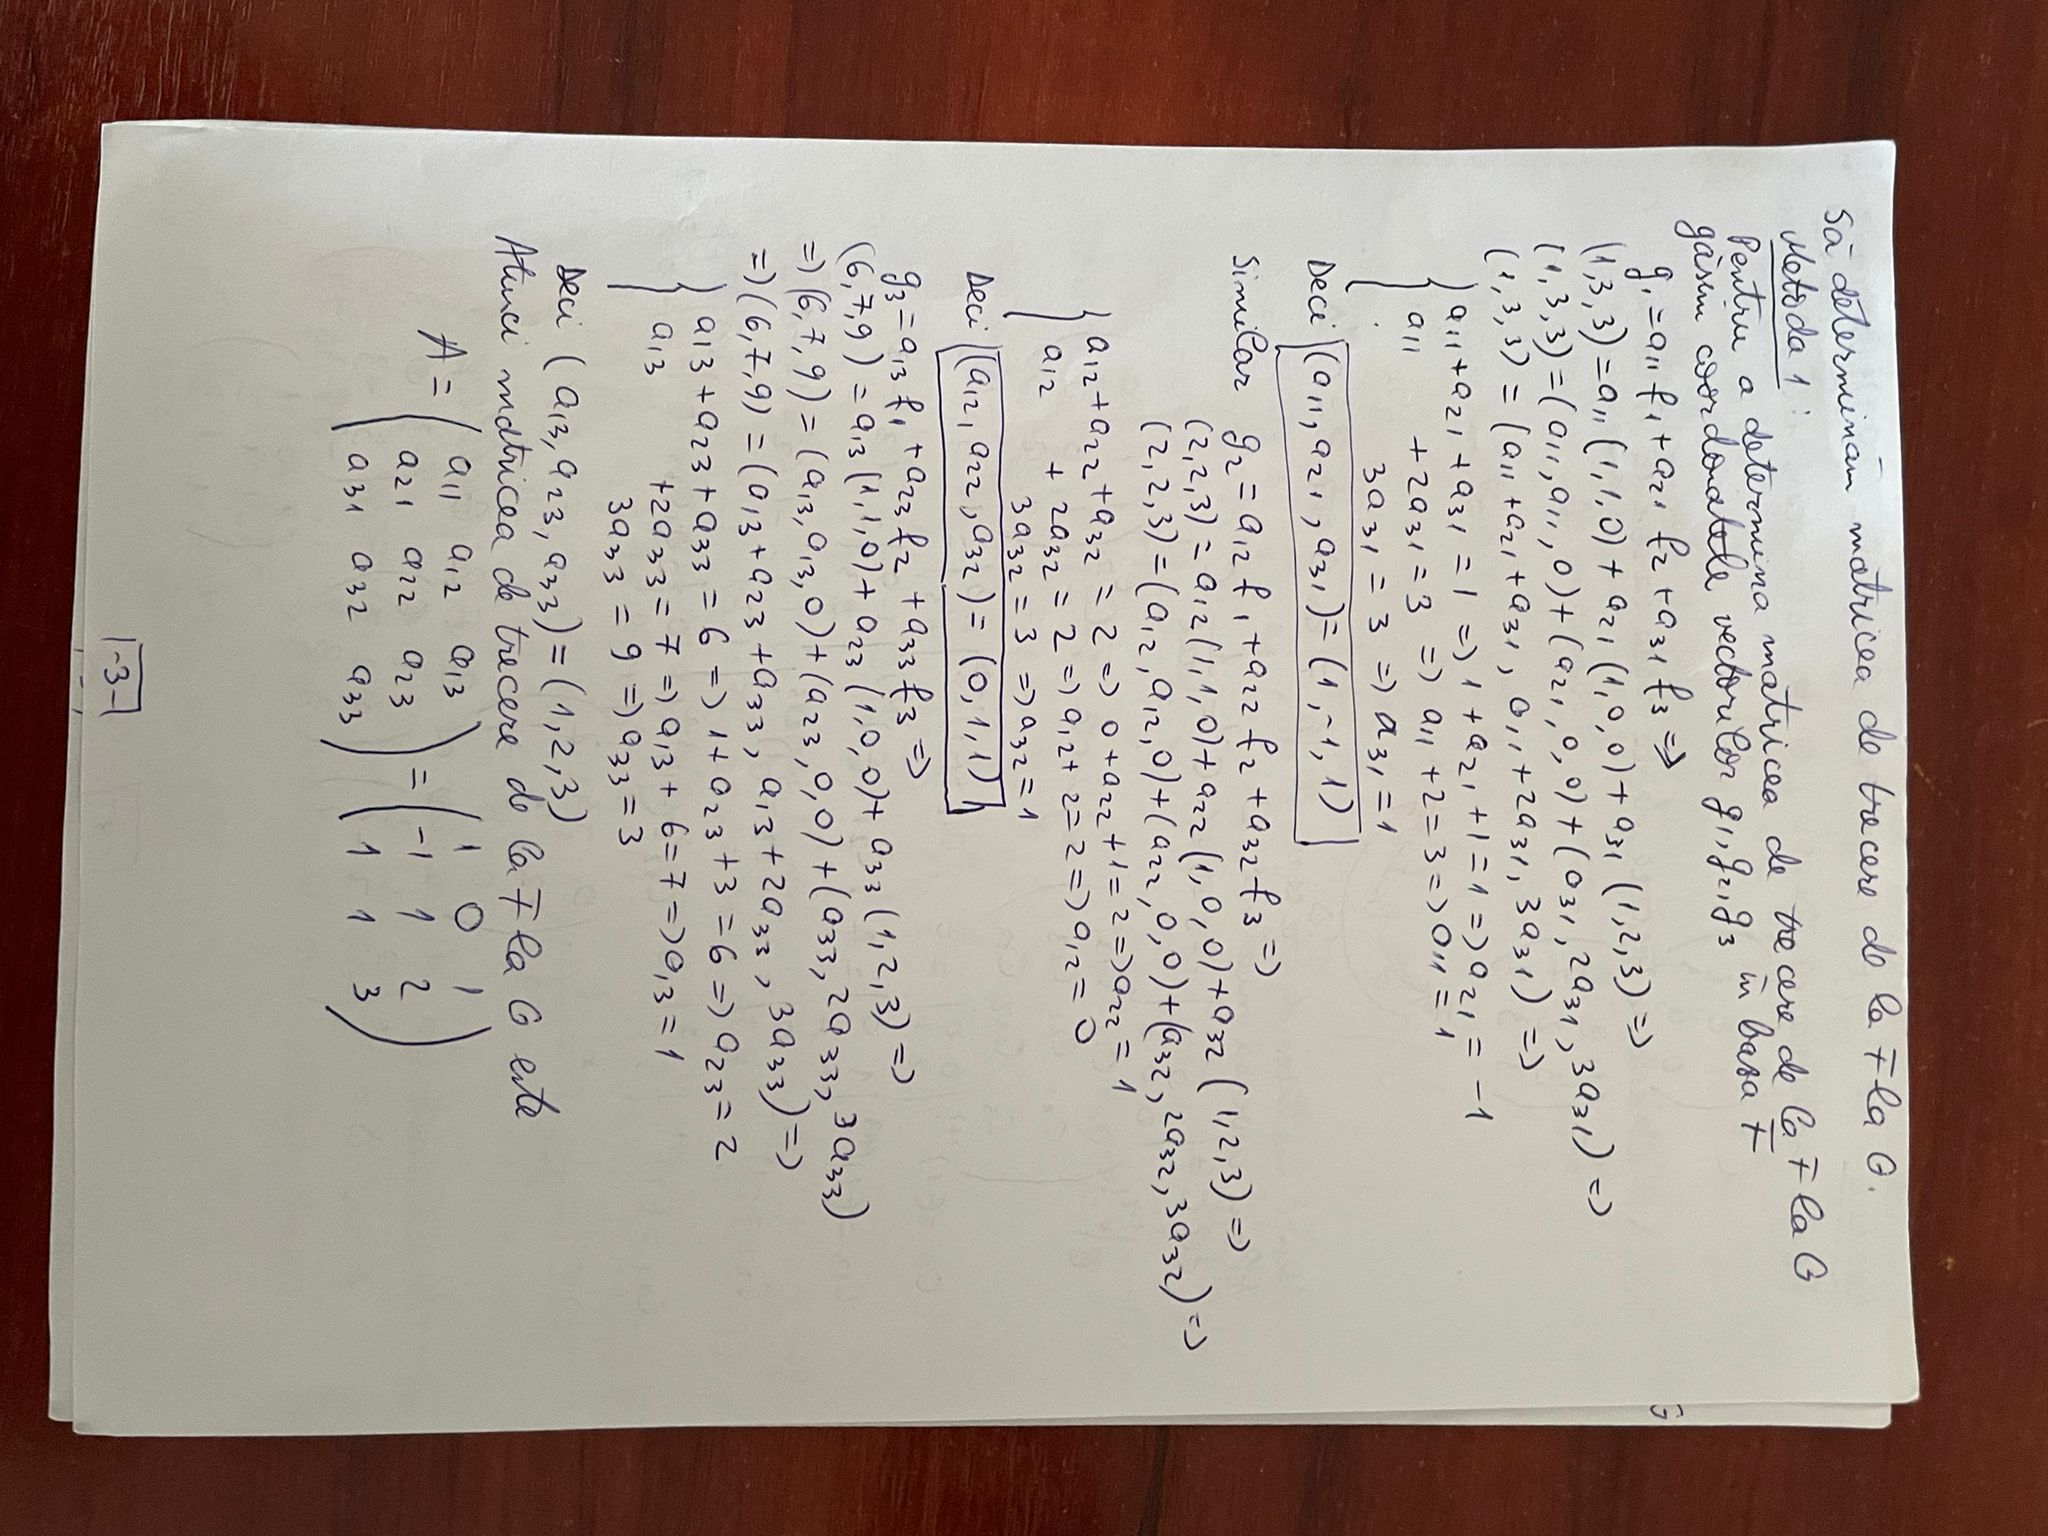 Să determinăm matricea de trecere de la F la G.
Metoda 1:
Pentru a determina matricea de trecere de la F la G
găsim coordonatele vectorilor g1, g2, g3 în baza F
g1 = a11 f1 + a21 f2 + a31 f3 =>
(1,3,3) = a11 (1,1,0) + a21 (1,0,0) + a31 (1,2,3) =>
(1,3,3) = (a11, a11, 0) + (a21, 0, 0) + (a31, 2a31, 3a31) =>
(1,3,3) = (a11 + a21 + a31, a11 + 2a31, 3a31) =>
{ a11 + a21 + a31 = 1 => 1 + a21 + 1 = 1 => a21 = -1
a11 + 2a31 = 3 => a11 + 2 = 3 => a11 = 1
3a31 = 3 => a31 = 1
Deci (a11, a21, a31) = (1, -1, 1)
Similar g2 = a12 f1 + a22 f2 + a32 f3 =>
(2,2,3) = a12 (1,1,0) + a22 (1,0,0) + a32 (1,2,3) =>
(2,2,3) = (a12, a12, 0) + (a22, 0, 0) + (a32, 2a32, 3a32) =>
{ a12 + a22 + a32 = 2 => 0 + a22 + 1 = 2 => a22 = 1
a12 + 2a32 = 2 => a12 + 2 = 2 => a12 = 0
3a32 = 3 => a32 = 1
Deci (a12, a22, a32) = (0, 1, 1)
g3 = a13 f1 + a23 f2 + a33 f3 =>
(6,7,9) = a13 (1,1,0) + a23 (1,0,0) + a33 (1,2,3) =>
=> (6,7,9) = (a13, a13, 0) + (a23, 0, 0) + (a33, 2a33, 3a33)
=> (6,7,9) = (a13 + a23 + a33, a13 + 2a33, 3a33) =>
{ a13 + a23 + a33 = 6 => 1 + a23 + 3 = 6 => a23 = 2
a13 + 2a33 = 7 => a13 + 6 = 7 => a13 = 1
3a33 = 9 => a33 = 3
Deci (a13, a23, a33) = (1, 2, 3)
Atunci matricea de trecere de la F la G este
a11 a12 a13 1 0 1
A = ( a21 a22 a23 ) = ( -1 1 2 )
a31 a32 a33 1 1 3
-3-